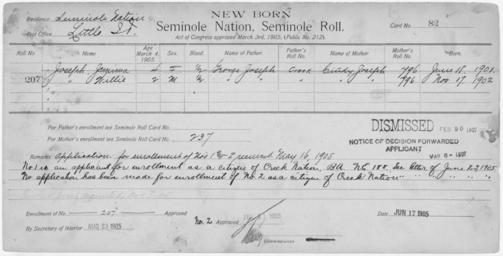 NEW BORN
Residence Seminole Nation
Seminole Nation, Seminole Roll.
Card No. 82
Post Office. Little I.T.
Act of Congress approved March 3rd, 1905. (Public No. 212).
Roll No. Name Age March 4, 1905. Sex. Blood. Name of Father Father's Roll No. Name of Mother Mother's Roll No. Born.
Joseph, Jemima 4 F George Joseph Creek Cindy Joseph 796 June 18, 1901
207 " Millie 2 " " " " 796 Nov 17, 1902
For Father's enrollment see Seminole Roll Card No.
For Mother's enrollment see Seminole Roll Card No. 237
DISMISSED FEB 20 1907
NOTICE OF DECISION FORWARDED
APPLICANT
Remarks: Application for enrollment of Nos 1 & 2 received May 16, 1905
No 1 is an applicant for enrollment as a citizen of Creek Nation, See letter of June 2-1905
No application has been made for enrollment of No. 2 as a citizen of Creek Nation
Enrollment of No. 207 Approved
No. 2 Approved 1905
Date JUN 17 1905
By Secretary of Interior 1905
Commissioner